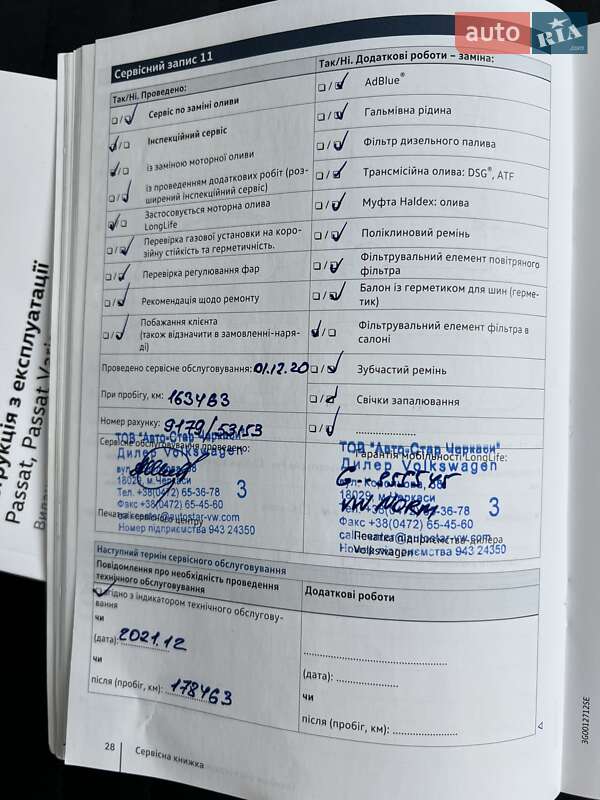 auto RIA .com
Сервісний запис 11
Так/Ні. Проведено:
Сервіс по заміні оливи
Інспекційний сервіс
із заміною моторної оливи
із проведенням додаткових робіт (роз-
ширений інспекційний сервіс)
Застосовується моторна олива
LongLife
Перевірка газової установки на коро-
зійну стійкість та герметичність.
Перевірка регулювання фар
Рекомендація щодо ремонту
Побажання клієнта
(також відзначити в замовленні-наря-
ді)
Проведено сервісне обслуговування: 01.12.20
При пробігу, км: 163483
Номер рахунку: 9179/53153
Сервісне обслуговування проведено:
ТОВ "Авто-Стар Черкаси"
Дилер Volkswagen
18029, м.Черкаси
Тел. +38(0472) 65-36-78
Факс +38(0472) 65-45-60
3
Печатка сервісного центру
Номер підприємства 943 24350
Так/Ні. Додаткові роботи – заміна:
AdBlue®
Гальмівна рідина
Фільтр дизельного палива
Трансмісійна олива: DSG®, ATF
Муфта Haldex: олива
Поліклиновий ремінь
Фільтрувальний елемент повітряного
фільтра
Балон із герметиком для шин (герме-
тик)
Фільтрувальний елемент фільтра в
салоні
Зубчастий ремінь
Свічки запалювання
....................
ТОВ "Авто-Стар Черкаси"
Гарантія мобільності LongLife:
Дилер Volkswagen
18029
3
Факс +38(0472) 65-45-60
Печатка підприємства-дилера
Volkswagen
943 24350
Наступний термін сервісного обслуговування
Повідомлення про необхідність проведення
технічного обслуговування
згідно з індикатором технічного обслугову-
вання
чи
(дата): 2021.12
чи
після (пробіг, км): 178463
Додаткові роботи
(дата): ....................
чи
після (пробіг, км): ....................
28 Сервісна книжка
3G0012712SE
рукція з експлуатації
Passat, Passat Vari